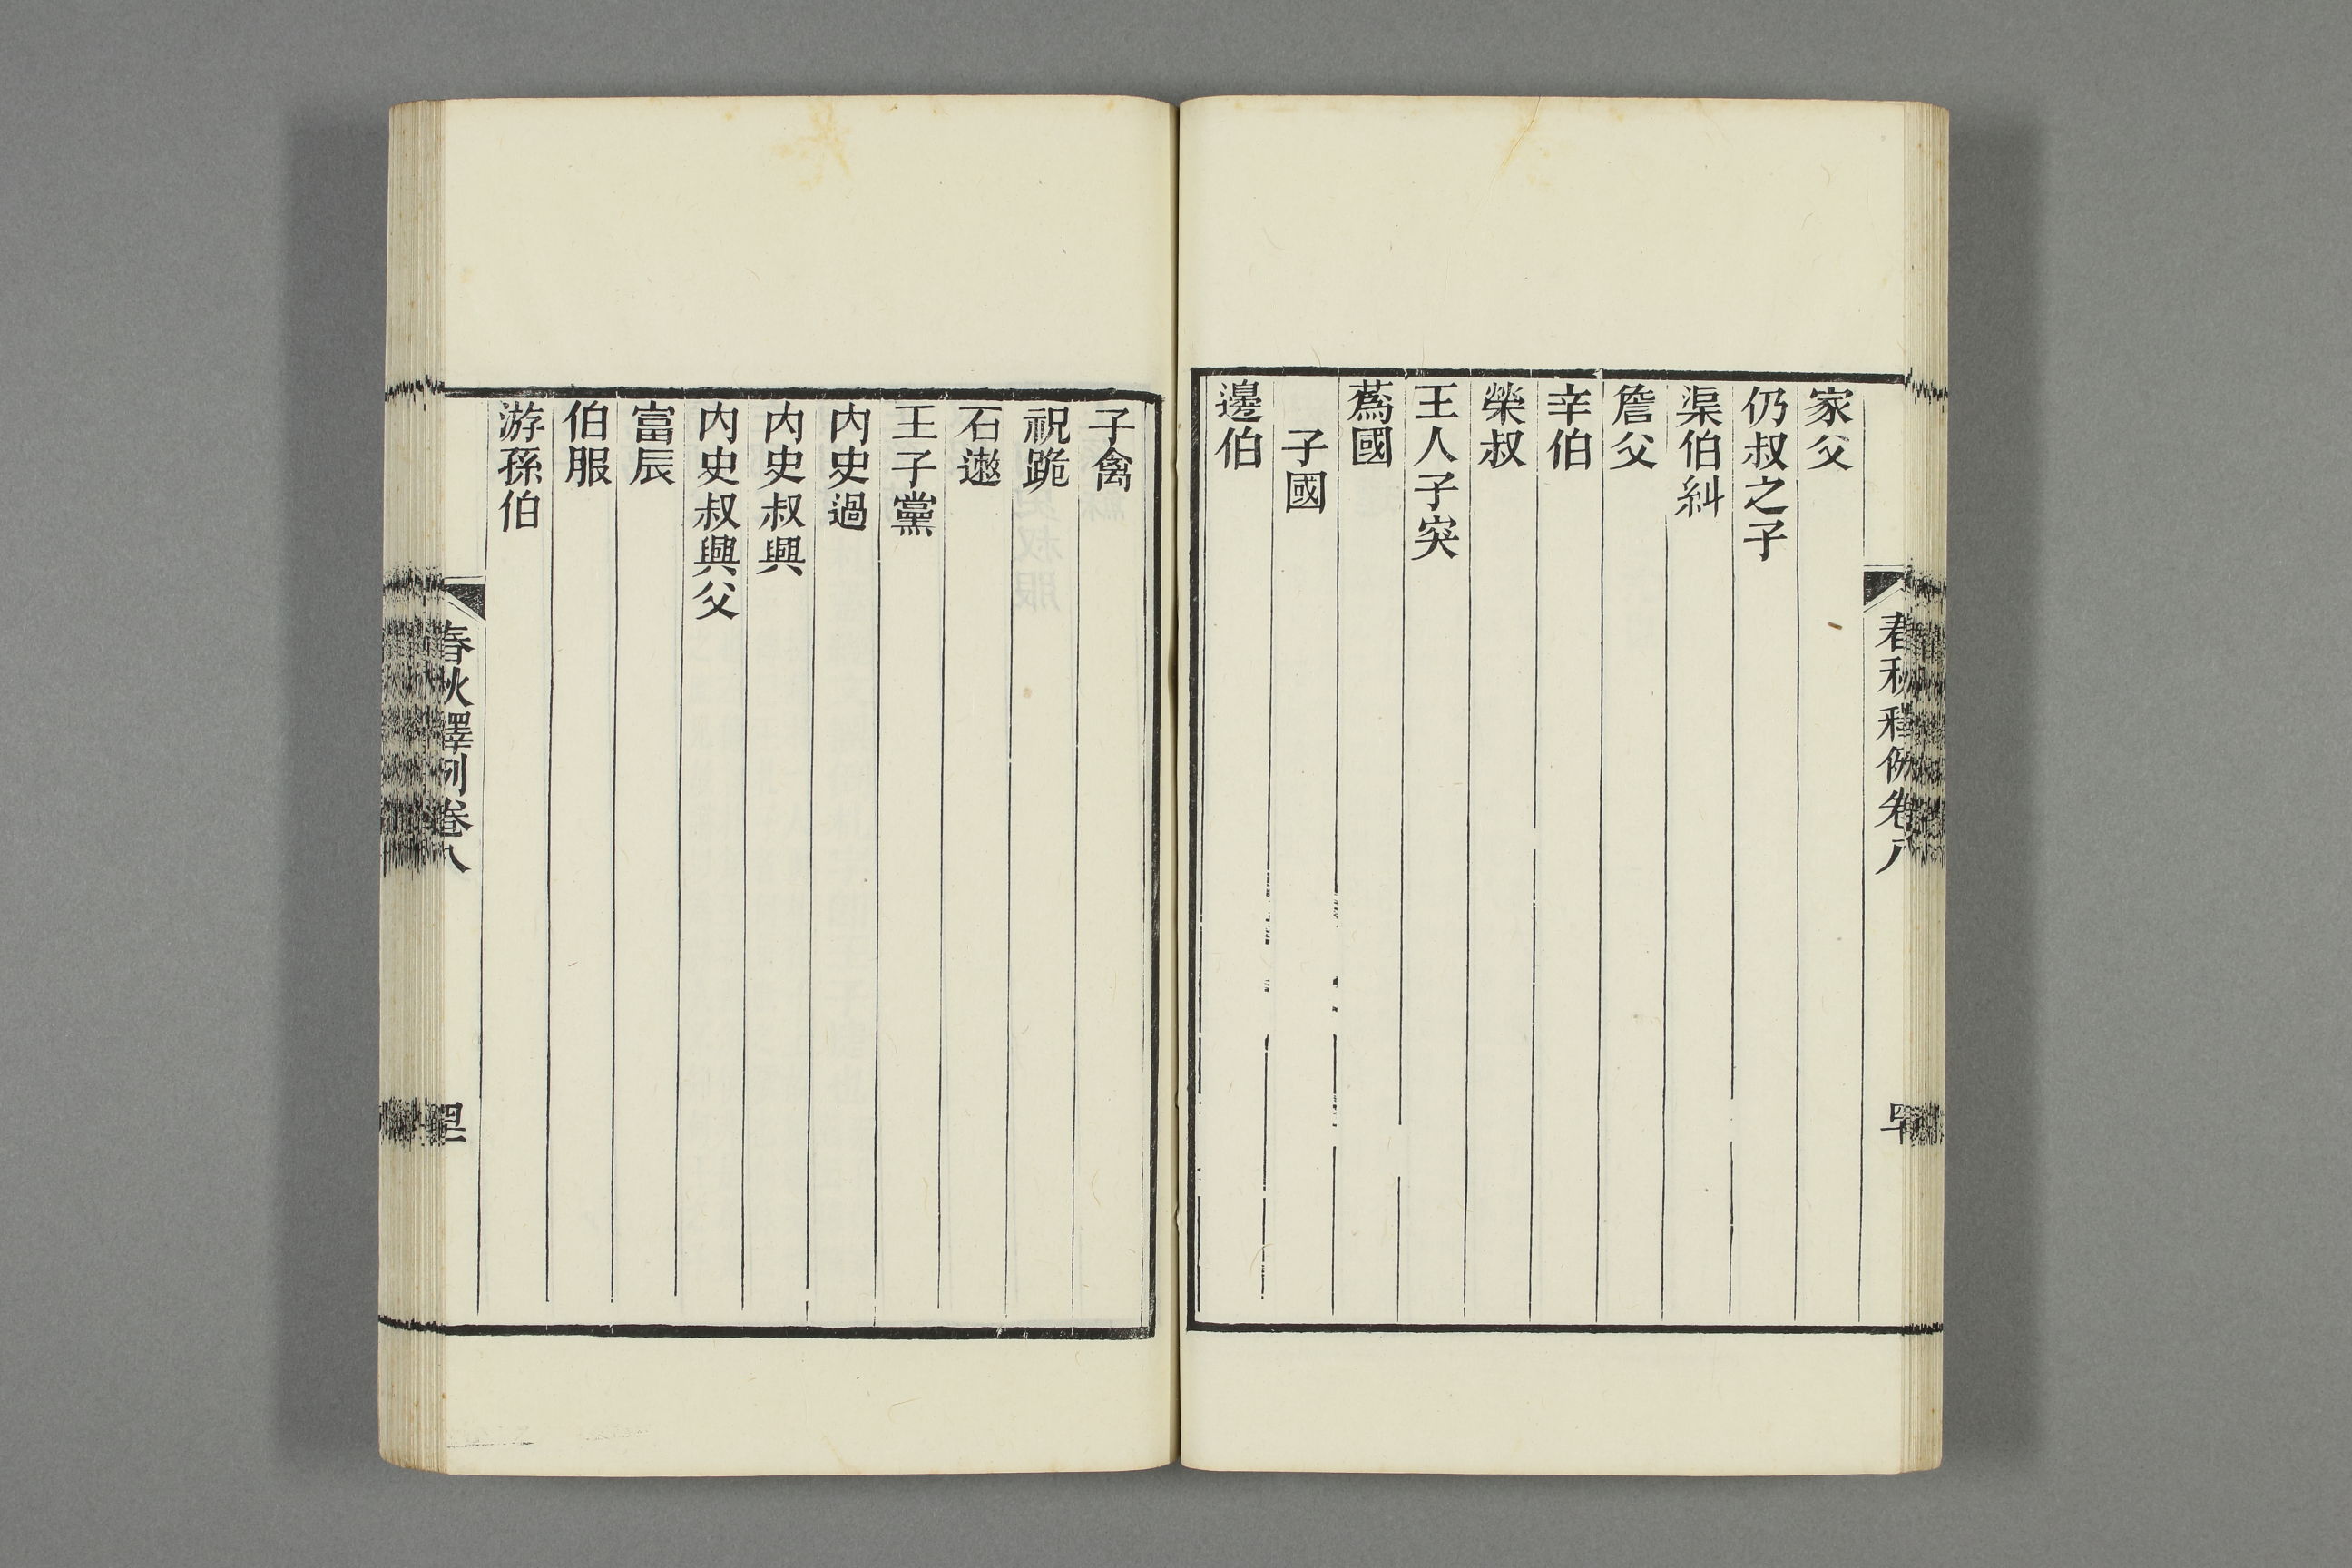 春秋釋例卷八
家父
仍叔之子
渠伯糾
詹父
辛伯
榮叔
王人子突
蔿國
子國
邊伯
子禽
祝跪
石遬
王子黨
內史過
內史叔興
內史叔興父
富辰
伯服
游孫伯
春秋釋例卷八